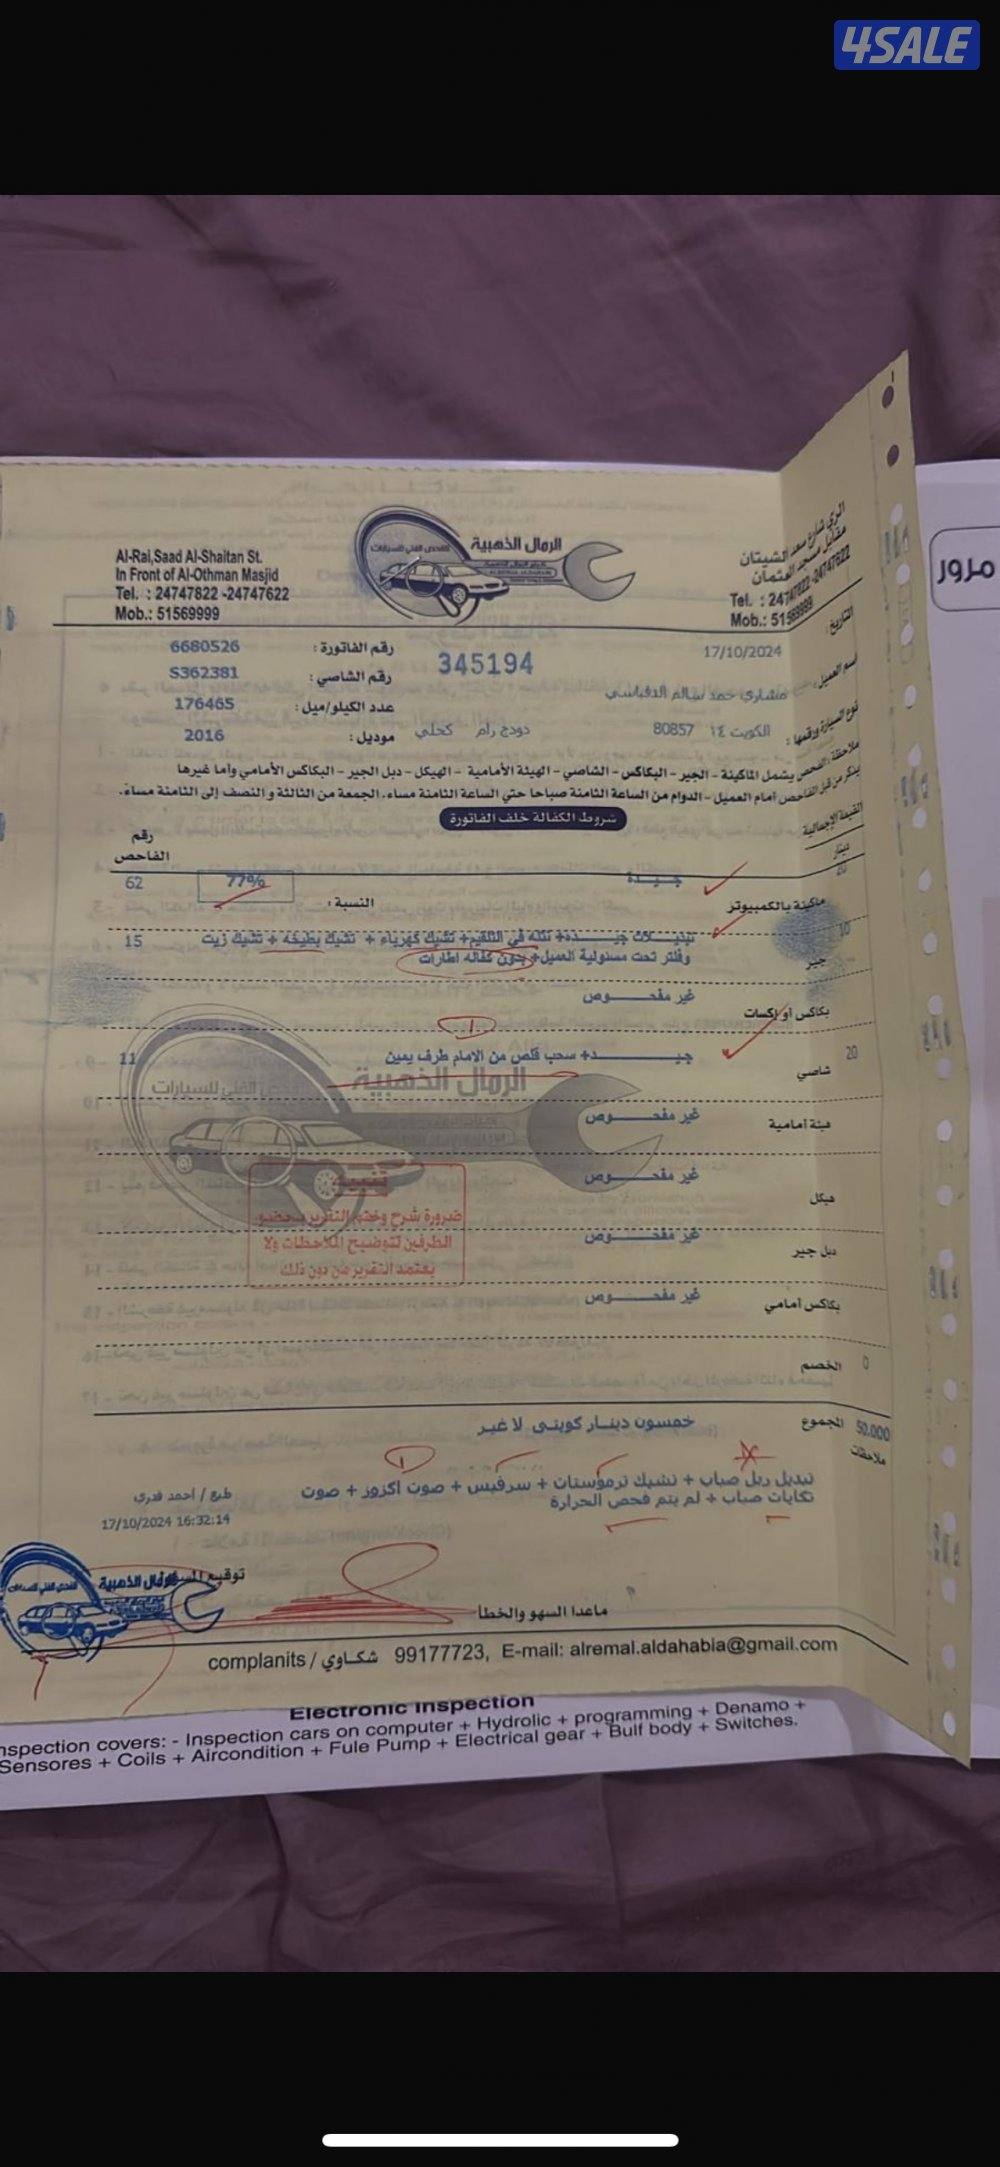 4SALE
Al-Rai,Saad Al-Shaitan St.
In Front of Al-Othman Masjid
Tel. : 24747822 -24747622
Mob.: 51569999
الرمال الذهبية
للفحص الفني للسيارات
الري شارع سعد الشيتان
مقابل مسجد العثمان
Tel. : 24747822-24747622
Mob.: 51569999
مرور
التاريخ:
17/10/2024
345194
رقم الفاتورة : 6680526
اسم العميل: مشاري حمد سالم الدقباسي
رقم الشاصي : S362381
عدد الكيلو/ميل : 176465
نوع السيارة ورقمها : الكويت ١٤ 80857 دودج رام كحلي
موديل : 2016
ملاحظة: الفحص يشمل الماكينة - الجير - البكاكس - الشاصي - الهيئة الأمامية - الهيكل - دبل الجير - البكاكس الأمامي وأما غيرها
يذكر من قبل الفاحص أمام العميل - الدوام من الساعة الثامنة صباحا حتي الساعة الثامنة مساء. الجمعة من الثالثة و النصف إلى الثامنة مساء.
القيمة الإجمالية
شروط الكفالة خلف الفاتورة
دينار
رقم
الفاحص
ماكينة بالكمبيوتر جيـــدة النسبة : 77% 62
10 جير تبديـلات جيـــدة+ نتله في التلقيم+ تشيك كهرباء + تشيك بطيخه + تشيك زيت 15
وفلتر تحت مسئولية العميل+ بدون كفاله اطارات
بكاكس أو إكسات غير مفحـــوص
20 شاصي جيـــد+ سحب قلص من الامام طرف يمين 11
الرمال الذهبية
للفحص الفني للسيارات
هيئة أمامية غير مفحـــوص
هيكل غير مفحـــوص
دبل جير غير مفحـــوص
بكاكس أمامي غير مفحـــوص
تنبيه
ضرورة شرح وختم التقرير بحضور
الطرفين لتوضيح الملاحظات ولا
يعتمد التقرير من دون ذلك
0 الخصم
50.000 المجموع خمسون دينـار كويتى لا غير
ملاحظات
تبديل ربل صباب + تشيك ترموستات + سرفيس + صوت اكزوز + صوت
تكايات صباب + لم يتم فحص الحرارة
طبع / أحمد قدري
17/10/2024 16:32:14
توقيع المسئول
الرمال الذهبية
ماعدا السهو والخطأ
complanits / شكاوي 99177723, E-mail: alremal.aldahabia@gmail.com
Electronic Inspection
nspection covers: - Inspection cars on computer + Hydrolic + programming + Denamo +
Sensores + Coils + Aircondition + Fule Pump + Electrical gear + Bulf body + Switches.